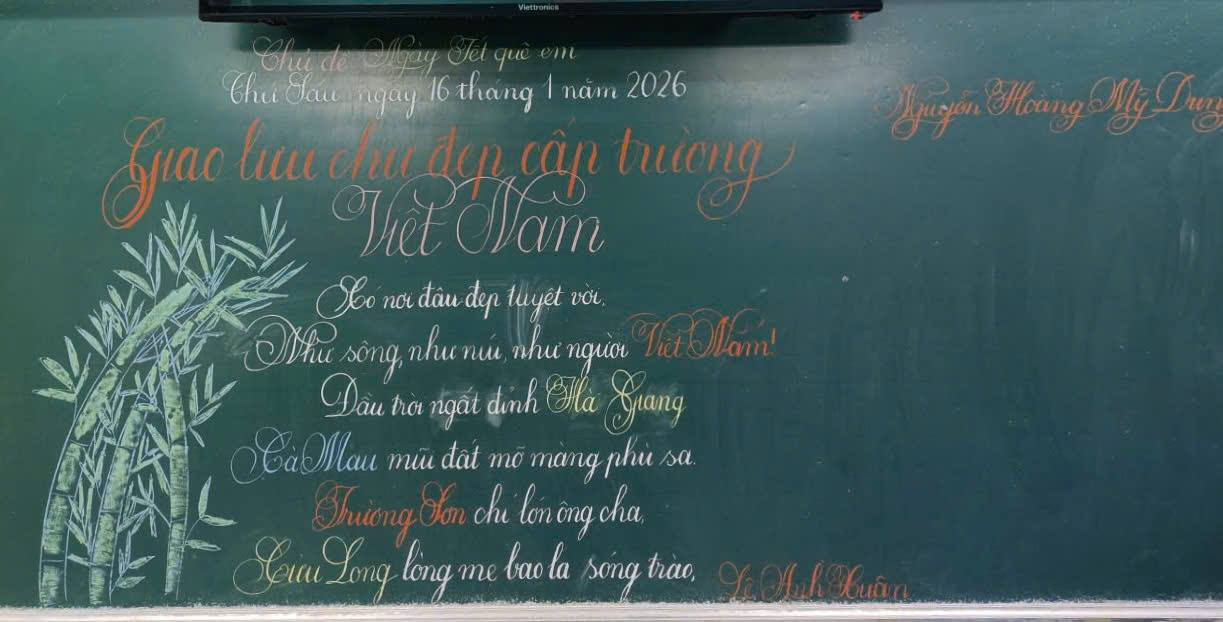 Viettronics
Chủ đề Ngày Tết quê em
Thứ Sáu ngày 16 tháng 1 năm 2026
Nguyễn Hoàng Mỹ Dung
Giao lưu chữ đẹp cấp trường
Việt Nam
Có nơi đâu đẹp tuyệt vời,
Như sông, như núi, như người Việt Nam!
Đầu trời ngất đỉnh Hà Giang
Cà Mau mũi đất mỡ màng phù sa.
Trường Sơn chí lớn ông cha,
Cửu Long lòng mẹ bao la sóng trào,
Lê Anh Xuân